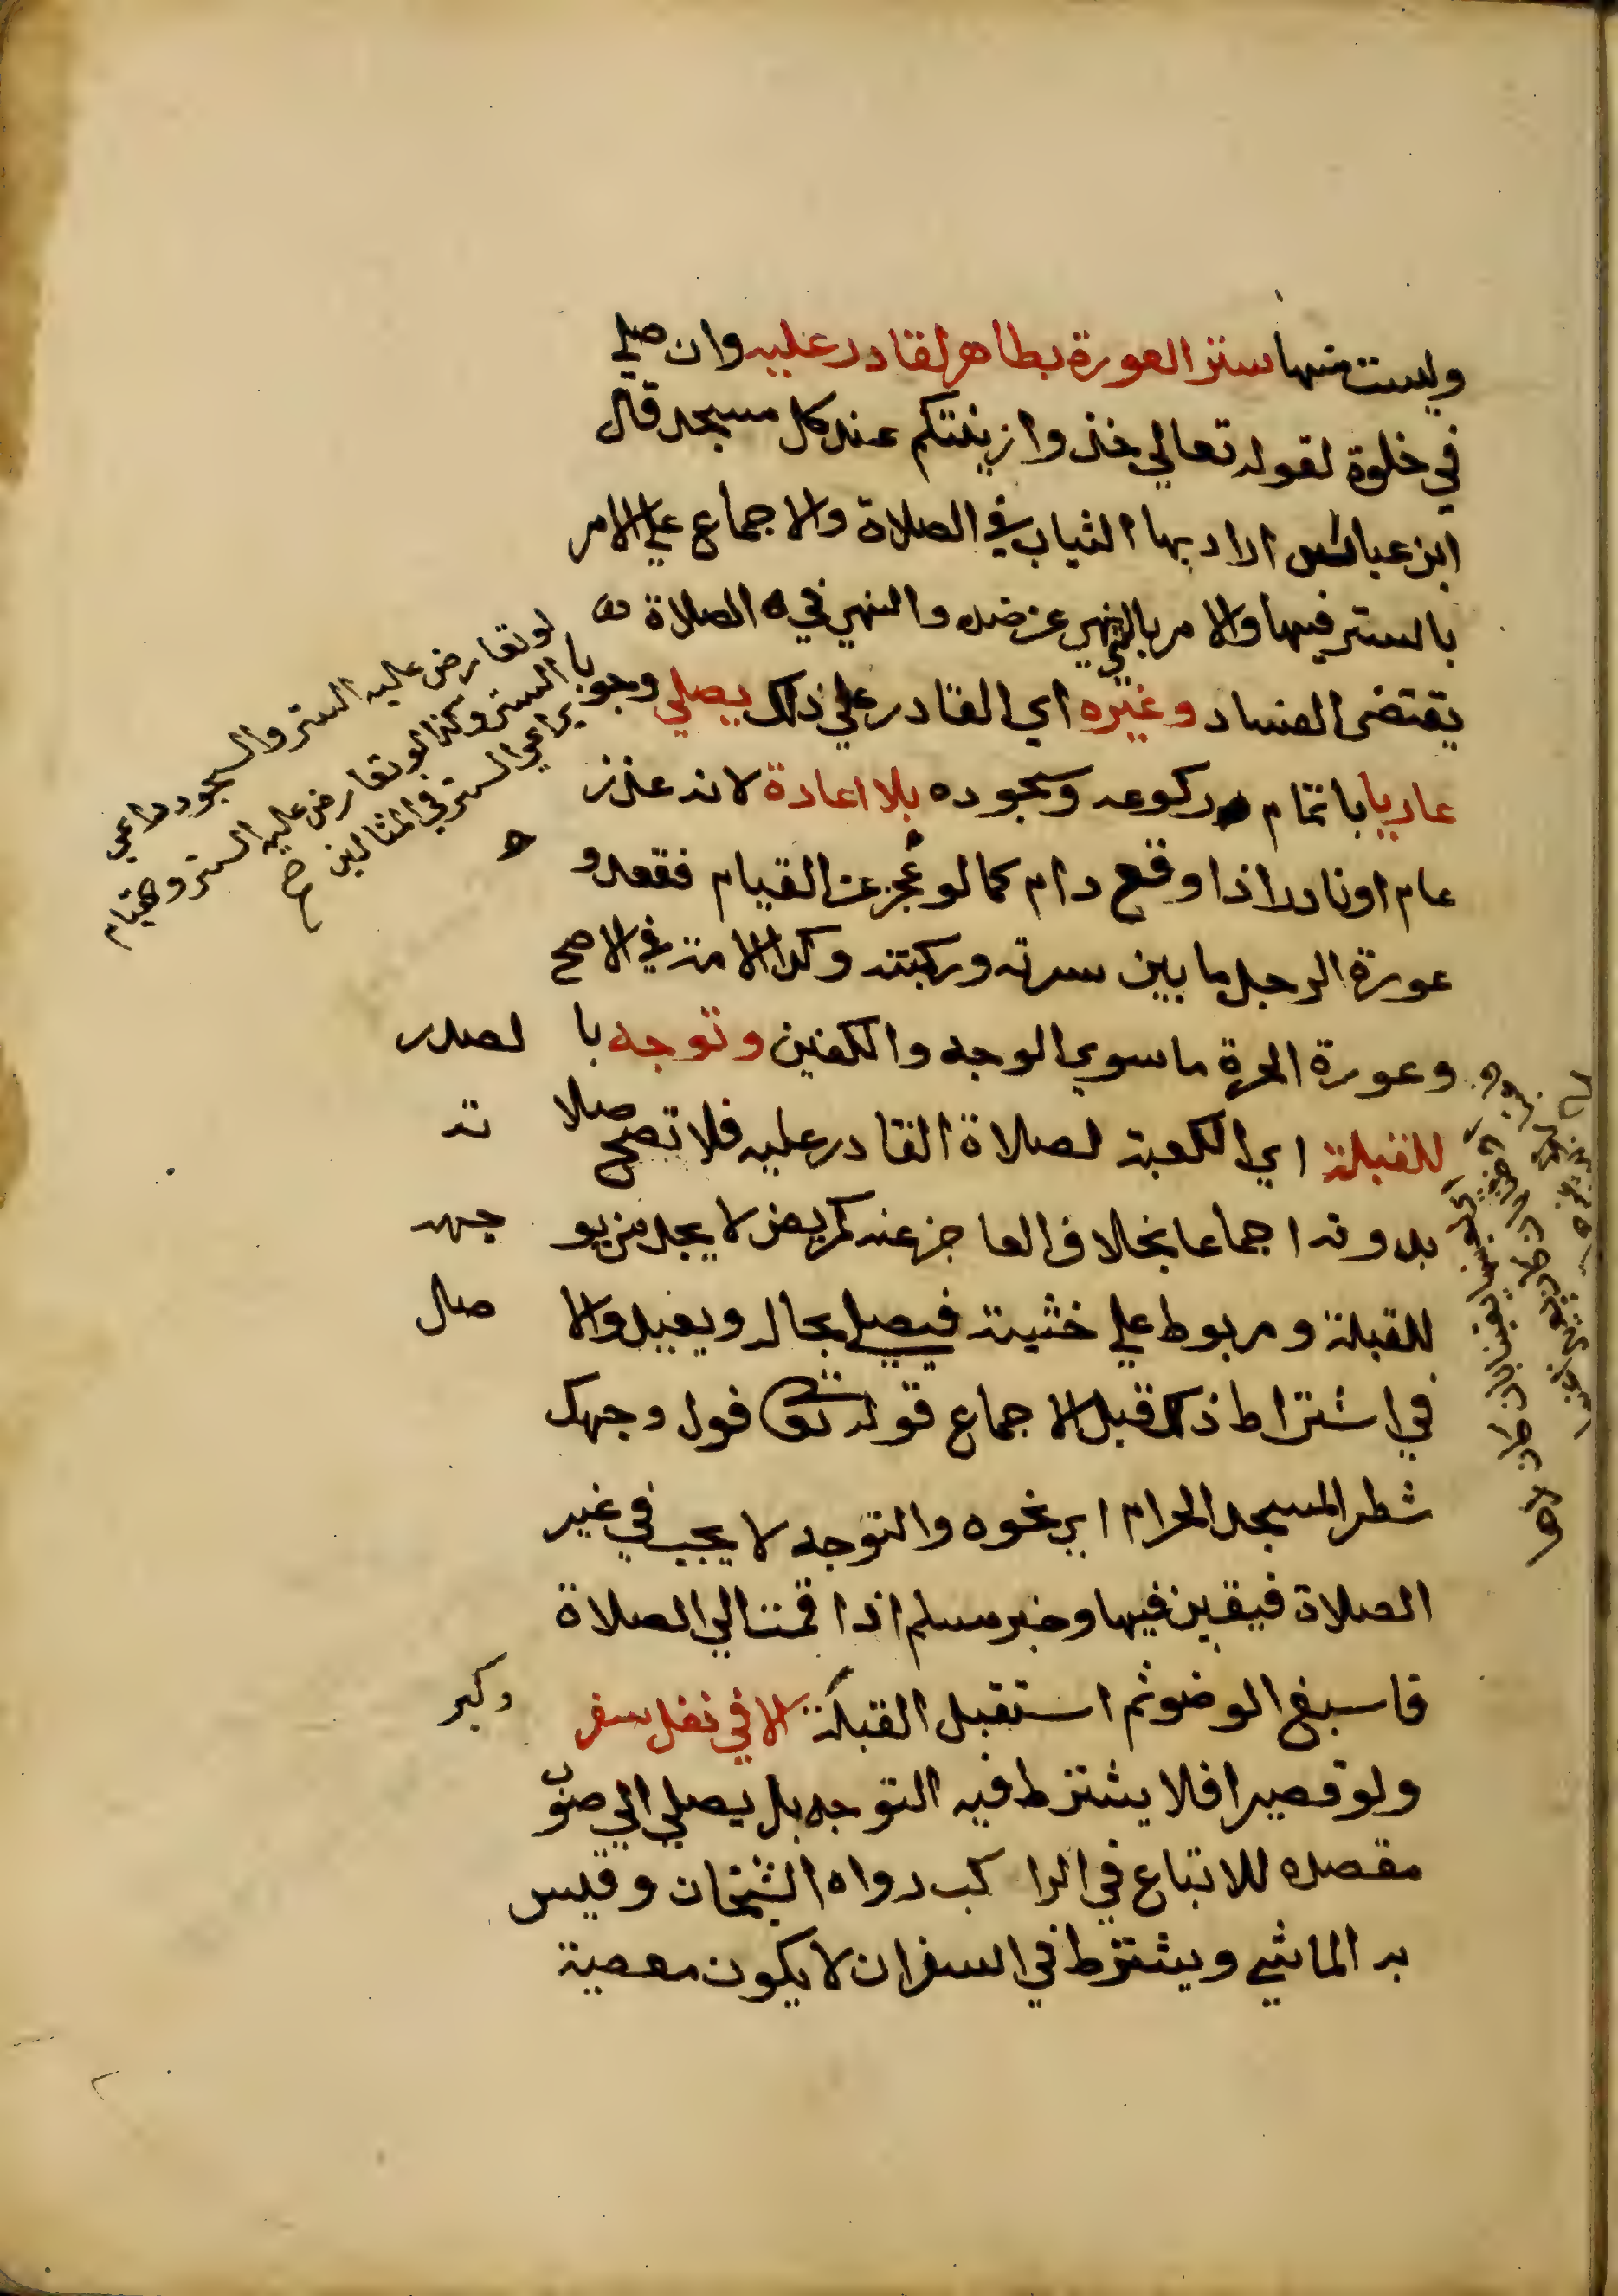 وليست منها ستر العورة بطاهر لقادر عليه وان صلي
في خلوة لقوله تعالي خذوا زينتكم عند كل مسجد قال
ابن عباس اراد بها الثياب في الصلاة والاجماع علي الامر
بالستر فيها والامر بالشي نهي عن ضده والنهي في الصلاة
يقتضى الفساد وغيره اي القادر علي ذلك يصلي وجوبا
عاريا باتمام ركوعه وسجوده بلا اعادة لانه عذر
عام او نادر اذا وقع دام كما لو عجز عن القيام فقعد و
عورة الرجل ما بين سرته وركبته وكذا الامة في الاصح
وعورة الحرة ما سوي الوجه والكفين وتوجه با لصدر
للقبلة اي الكعبة لصلاة القادر عليه فلا تصح صلا ته
بدونه اجماعا بخلاف العاجز عنه كمريض لا يجد من يو جهه
للقبلة ومربوط علي خشبة فيصلي بحاله ويعيد والا صل
في اشتراط ذلك قبل الاجماع قوله تعا فول وجهك
شطر المسجد الحرام اي نحوه والتوجه لا يجب في غير
الصلاة فيقين فيها وخبر مسلم اذا قمت الي الصلاة
فاسبغ الوضو ثم استقبل القبلة وكبر الا في نفل سفر
ولو قصيرا فلا يشترط فيه التوجه بل يصلي الي صوب
مقصده للاتباع في الراكب رواه الشيخان وقيس
به الماشي ويشترط في السفر ان لا يكون معصية
لو تعارض عليه الستر والسجود راعي
الستر وكذا لو تعارض عليه الستر والقيام
يراعي الستر في المثالين